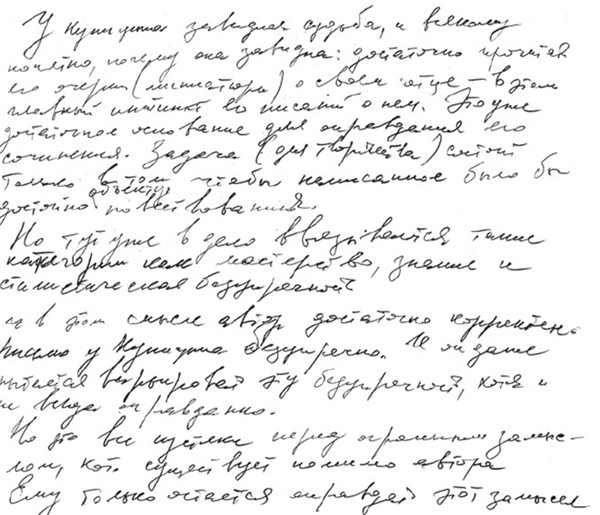 У Купицына завидная судьба, и всякому
понятно, почему она завидна: достаточно прочитать
его очерки (миниатюры) о своем отце – в этом
главный импульс его писаний о нем. Это уже
достаточное основание для оправдания его
сочинения. Задача (для творчества) состоит
только в том чтобы написанное было бы
достойно объекту повествования.
Но тут уже в дело ввязываются такие
категории как мастерство, знание и
стилистическая безупречность
и в этом смысле автор достаточно корректен.
Письмо у Купицына безупречно. И он даже
пытается варьировать эту безупречность, хотя и
не всегда оправданно.
Но это все пустяки перед огромным замыс-
лом, кот. существует помимо автора
Ему только остается оправдать этот замысел